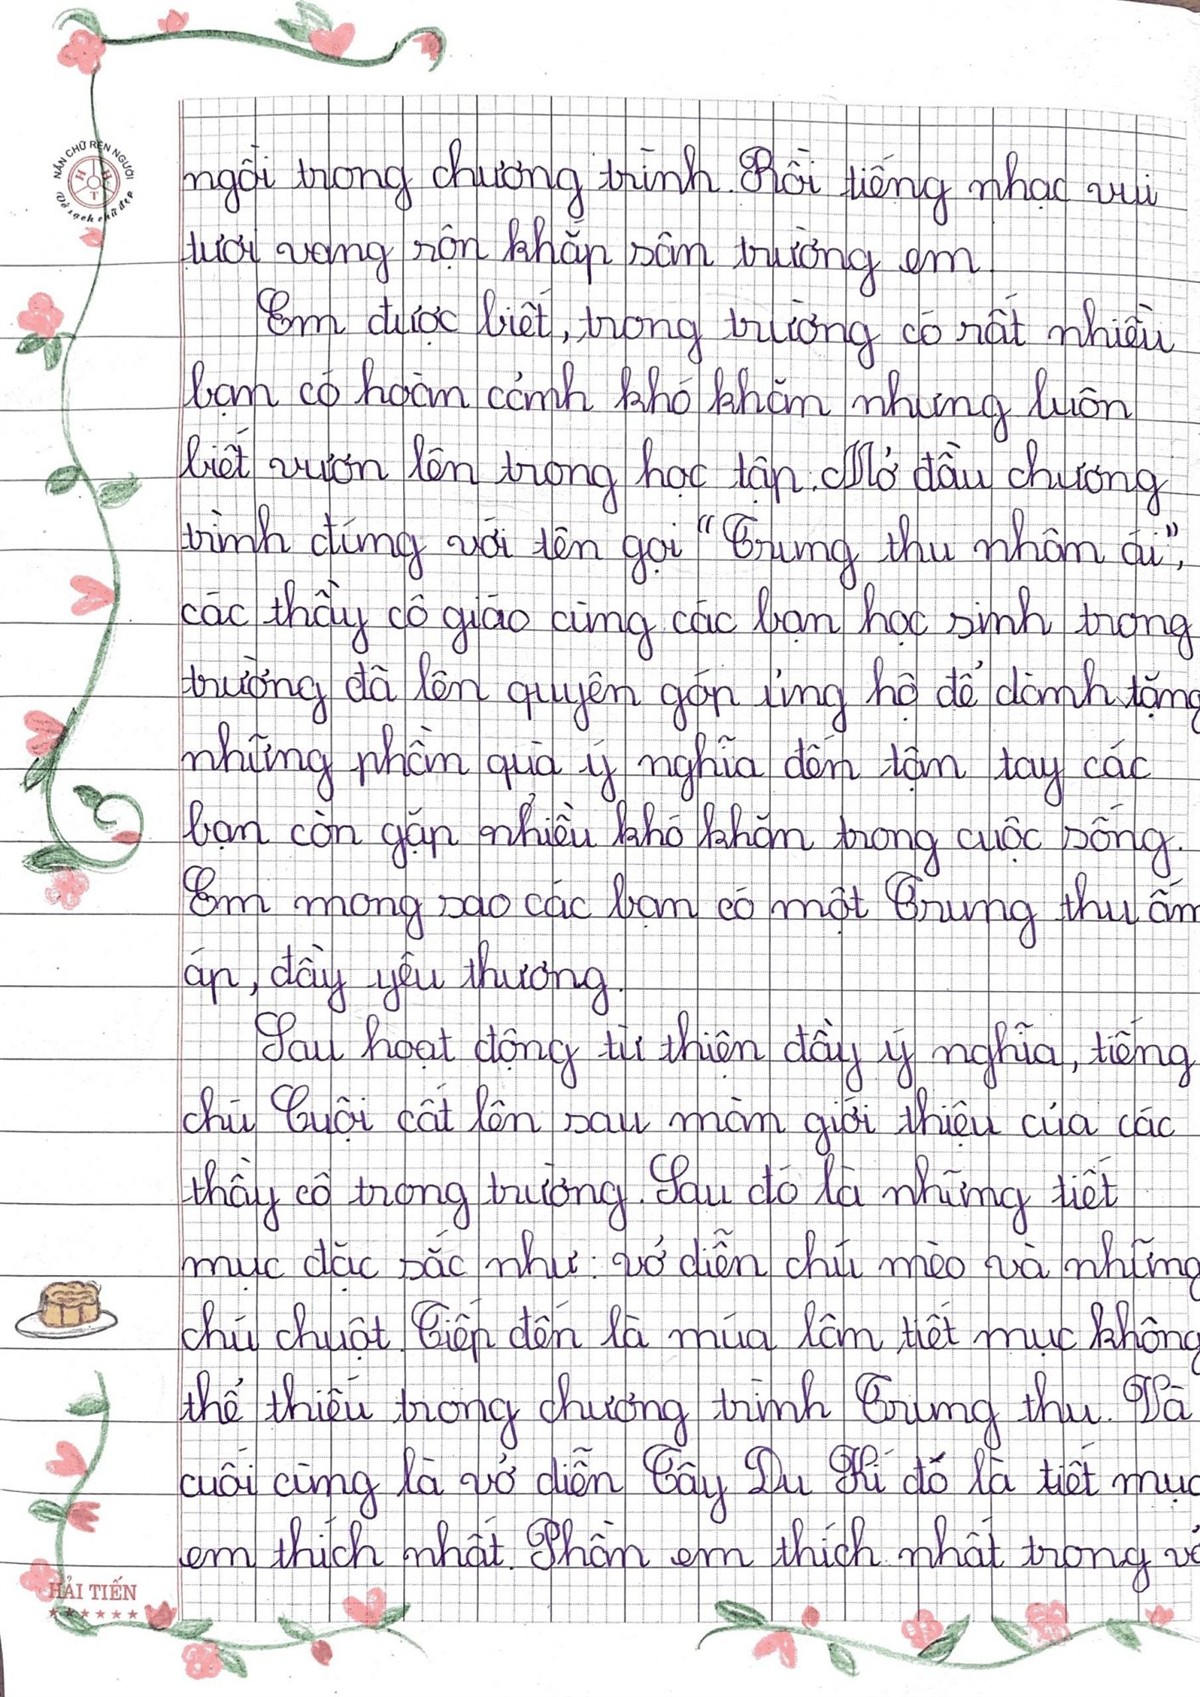 NẮN CHỮ RÈN NGƯỜI
Vở sạch chữ đẹp
ngồi trong chương trình. Rồi tiếng nhạc vui
tươi vang rộn khắp sân trường em.
Em được biết, trong trường có rất nhiều
bạn có hoàn cảnh khó khăn nhưng luôn
biết vươn lên trong học tập. Mở đầu chương
trình đúng với tên gọi "Trung thu nhân ái",
các thầy cô giáo cùng các bạn học sinh trong
trường đã lên quyên góp ủng hộ để dành tặng
những phần quà ý nghĩa đến tận tay các
bạn còn gặp nhiều khó khăn trong cuộc sống.
Em mong sao các bạn có một Trung thu ấm
áp, đầy yêu thương.
Sau hoạt động từ thiện đầy ý nghĩa, tiếng
chú Cuội cất lên sau màn giới thiệu của các
thầy cô trong trường. Sau đó là những tiết
mục đặc sắc như: vở diễn chú mèo và những
chú chuột. Tiếp đến là múa lân tiết mục không
thể thiếu trong chương trình Trung thu. Và
cuối cùng là vở diễn Tây Du Kí đó là tiết mục
em thích nhất. Phần em thích nhất trong vở
HẢI TIẾN